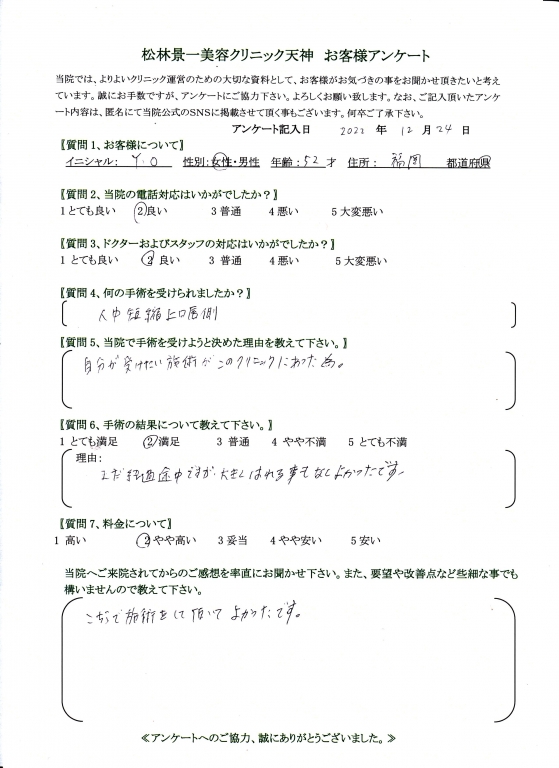 松林景一美容クリニック天神　お客様アンケート
当院では、よりよいクリニック運営のための大切な資料として、お客様がお気づきの事をお聞かせ頂きたいと考え
ています。誠にお手数ですが、アンケートにご協力下さい。よろしくお願い致します。なお、ご記入頂いたアンケ
ート内容は、匿名にて当院公式のSNSに掲載させて頂く事もございます。何卒ご了承下さい。
アンケート記入日　2022 年 12 月 24 日
【質問1、お客様について】
イニシャル： Y.O　性別：女性・男性　年齢：52 才　住所： 福岡　都道府県
【質問2、当院の電話対応はいかがでしたか？】
1とても良い　2良い　3 普通　4悪い　5大変悪い
【質問3、ドクターおよびスタッフの対応はいかがでしたか？】
1 とても良い　2 良い　3 普通　4悪い　5大変悪い
【質問4、何の手術を受けられましたか？】
人中短縮 口唇側
【質問5、当院で手術を受けようと決めた理由を教えて下さい。】
自分が受けたい施術がこのクリニックにあった為。
【質問6、手術の結果について教えて下さい。】
1 とても満足　2 満足　3 普通　4 やや不満　5 とても不満
理由：
まだ経過途中ですが、大きくはれる事もなくよかったです
【質問7、料金について】
1 高い　2 やや高い　3 妥当　4 やや安い　5 安い
当院へご来院されてからのご感想を率直にお聞かせ下さい。また、要望や改善点など些細な事でも
構いませんので教えて下さい。
こちらで施術をして頂いてよかったです。
≪アンケートへのご協力、誠にありがとうございました。≫